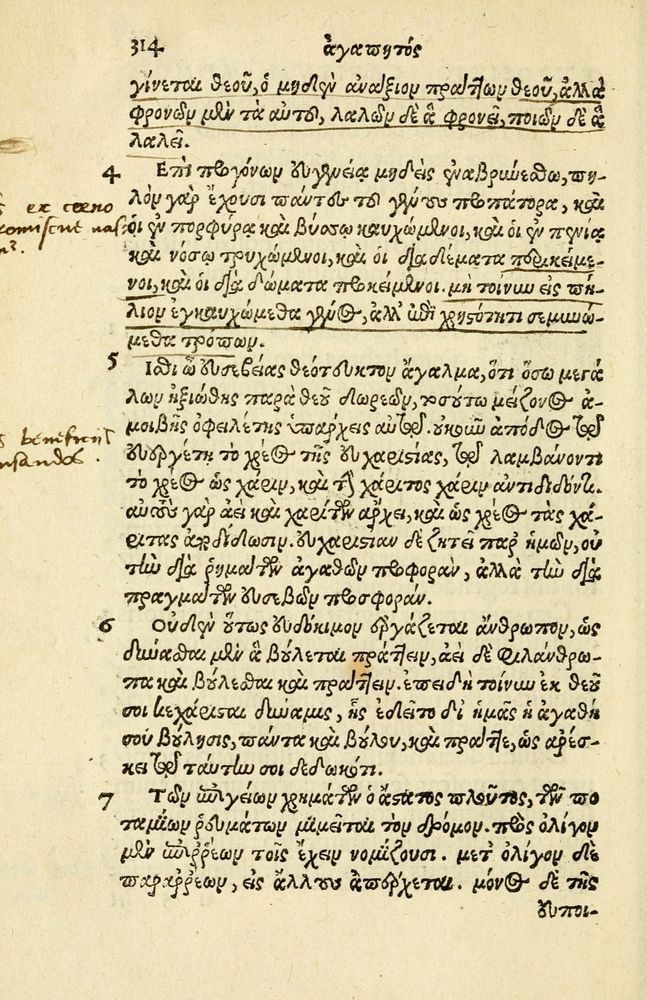 314 ἀγαπητός
γίνεται θεοῦ, ὁ μηδὲν ἀνάξιον πράττων θεοῦ, ἀλλὰ
φρονῶν μὲν τὰ αὐτοῦ, λαλῶν δὲ ἃ φρονεῖ, ποιῶν δὲ ἃ
λαλεῖ.
4 Επὶ προγόνων εὐγενείᾳ μηδεὶς ἐναβρυνέσθω, πη-
λὸν γὰρ ἔχουσι πάντες τοῦ γένους προπάτορα, καὶ
οἱ ἐν πορφύρᾳ καὶ βύσσῳ καυχώμενοι, καὶ οἱ ἐν πενίᾳ
καὶ νόσῳ τρυχώμενοι, καὶ οἱ διαδήματα περικείμε-
νοι, καὶ οἱ διὰ δώματα προκείμενοι. μὴ τοίνυν εἰς πή-
λινον ἐγκαυχώμεθα γένος, ἀλλ' ἐπὶ χρηστότητι σεμνυνώ-
μεθα τρόπων.
ex coeno
5 Ισθι ὦ εὐσεβείας θεότευκτον ἄγαλμα, ὅτι ὅσῳ μεγά
λων ἠξιώθης παρὰ θεοῦ δωρεῶν, τοσούτῳ μείζονος ἀ-
μοιβῆς ὀφειλέτης ὑπάρχεις αὐτῷ. οὐκοῦν ἀπόδος τῷ
εὐεργέτῃ τὸ χρέος τῆς εὐχαριστίας, τῷ λαμβάνοντι
τὸ χρέος ὡς χάριν, καὶ τῆς χάριτος χάριν ἀντιδιδόντι.
αὐτὸς γὰρ ἀεὶ καὶ χαρίτων ἄρχει, καὶ ὡς χρέος τὰς χά-
ριτας ἀποδίδωσιν. εὐχαριστίαν δὲ ζητεῖ παρ' ἡμῶν, οὐ
τὴν διὰ ῥημάτων ἀγαθῶν προφοράν, ἀλλὰ τὴν διὰ
πραγμάτων εὐσεβῶν προσφοράν.
6 Οὐδὲν οὕτως εὐδόκιμον ἐργάζεται ἄνθρωπον, ὡς
δύνασθαι μὲν ἃ βούλεται πράττειν, ἀεὶ δὲ φιλάνθρω-
πα καὶ βούλεσθαι καὶ πράττειν. ἐπειδὴ τοίνυν ἐκ θεοῦ
σοι κεχάρισται δύναμις, ἧς ἐδεῖτο δι' ἡμᾶς ἡ ἀγαθή
σου βούλησις, πάντα καὶ βούλου, καὶ πράττε, ὡς ἀρέσ-
κει τῷ ταύτην σοι δεδωκότι.
7 Τῶν ἐπιγείων χρημάτων ὁ ἄστατος πλοῦτος, τῶν πο
ταμίων ῥευμάτων μιμεῖται τὸν δρόμον. πρὸς ὀλίγον
μὲν ἐπιρρέων τοῖς ἔχειν νομίζουσι. μετ' ὀλίγον δὲ
παραρρέων, εἰς ἄλλους ἀπέρχεται. μόνος δὲ τῆς
εὐποι-